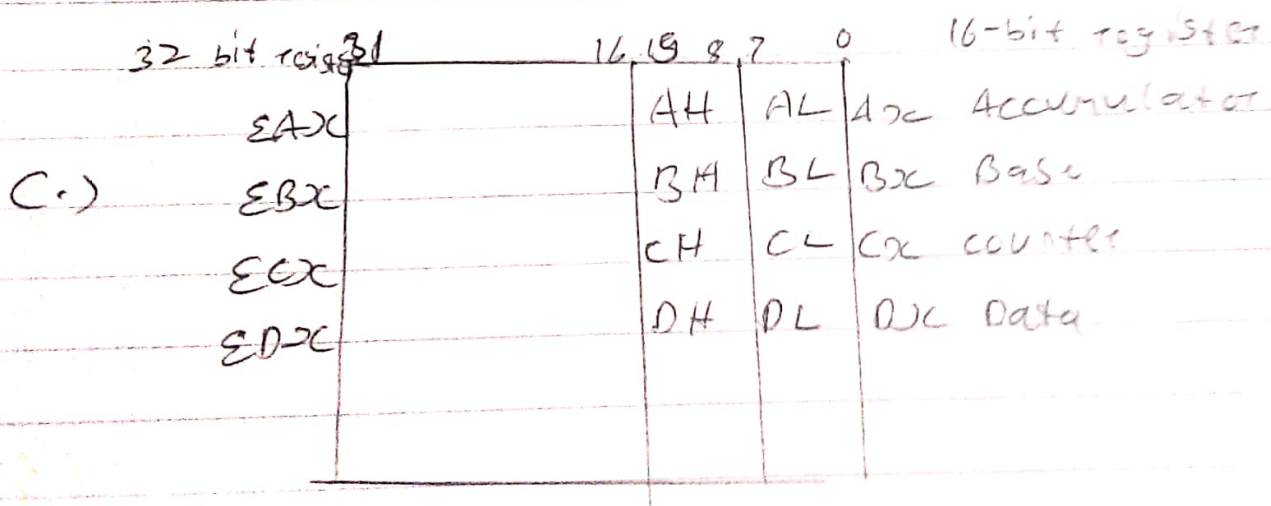 32 bit regis 31 16 15 8 7 0 16-bit register
EAX AH AL Ax Accumulator
(.) EBX BH BL Bx Base
ECX CH CL Cx counter
EDX DH DL Dx Data